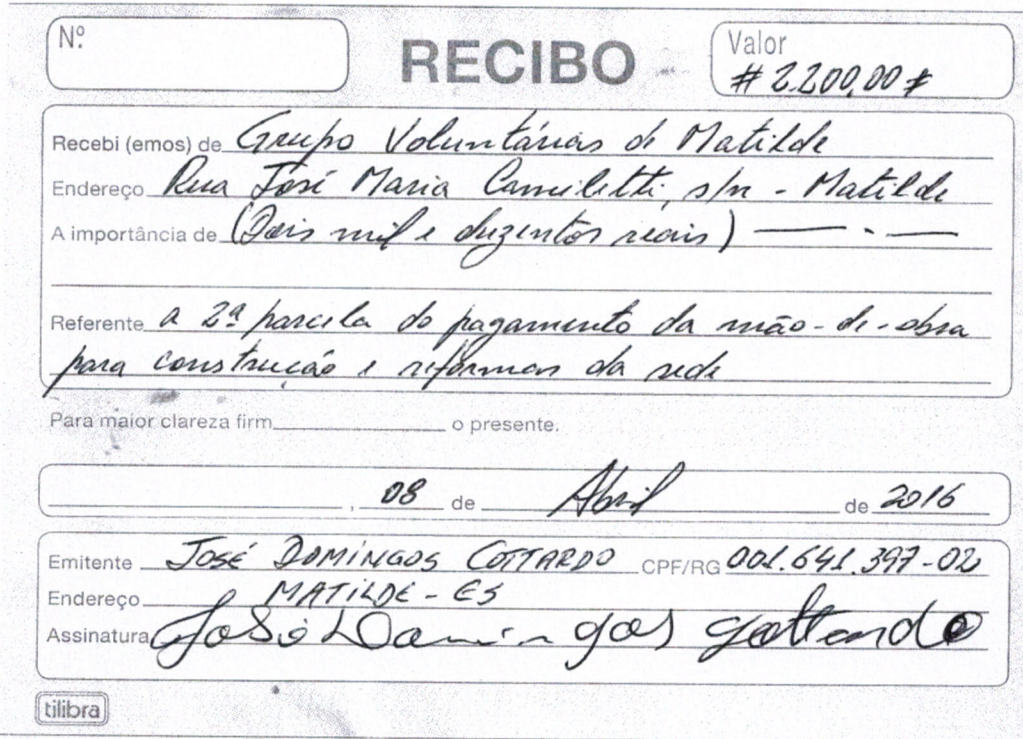 Nº
RECIBO
Valor
# 2.200,00 #
Recebi (emos) de Grupo Voluntárias de Matilde
Endereço Rua José Maria Camiletti, s/n - Matilde
A importância de (Dois mil e duzentos reais) — . —
Referente a 2ª parcela do pagamento da mão-de-obra
para construção e reformas da sede
Para maior clareza firm____________ o presente.
, 08 de Abril de 2016
Emitente JOSÉ DOMINGOS COTTARDO CPF/RG 001.641.397-02
Endereço MATILDE - ES
Assinatura José Domingos gottardo
tilibra